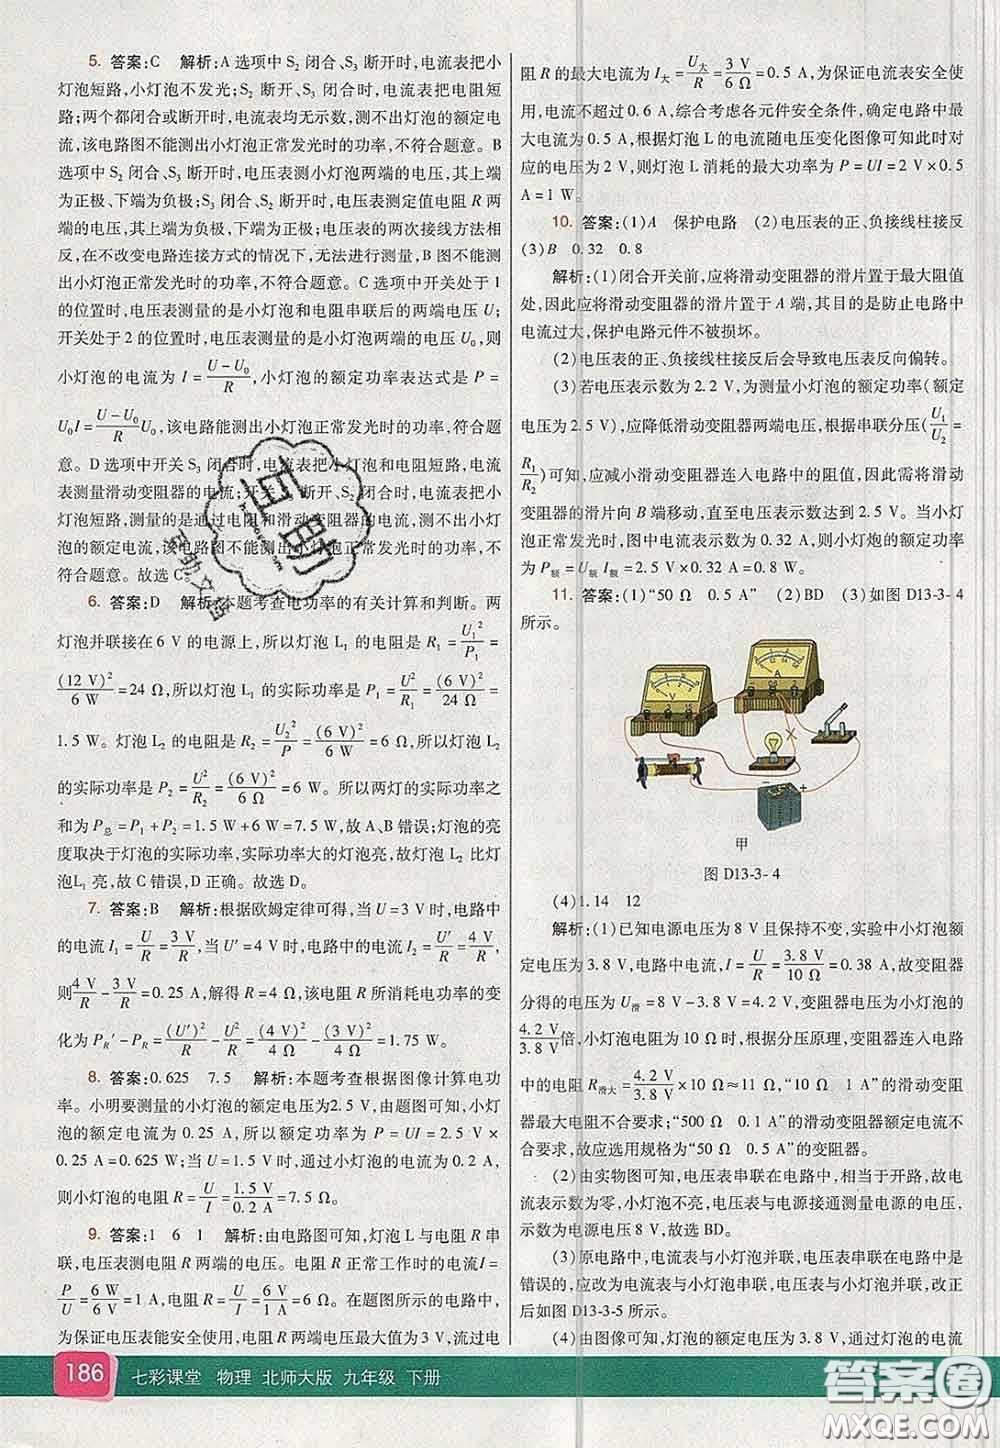 5. 答案:C 解析:A 选项中 S₂ 闭合、S₃ 断开时,电流表把小
灯泡短路,小灯泡不发光;S₂ 断开、S₃ 闭合时,电流表把电阻短
路;两个都闭合或断开时,电流表均无示数,测不出小灯泡的额定
电流,该电路图不能测出小灯泡正常发光时的功率,不符合题意。B
选项中 S₂ 闭合、S₃ 断开时,电压表测小灯泡两端的电压,电压表
的上端为正极、下端为负极;S₃ 闭合、S₂ 断开时,电压表测定值电阻 R
两端的电压,上端为负极、下端为正极。电压表的两次接线方法相
反,在不改变电路连接方式的情况下,无法进行测量,即 B 图不能测
出小灯泡正常发光时的功率,不符合题意。C 选项中开关处于 1
的位置时,电压表测量的是小灯泡和电阻串联后的两端电压 U;
开关处于 2 的位置时,电压表测量的是小灯泡两端的电压 U₀,则
小灯泡的电流为 I=(U−U₀)/R,小灯泡的额定功率表达式是 P=
U₀I=(U−U₀)/R U₀,该电路能测出小灯泡正常发光时的功率,符合题
意。D 选项中开关 S₃ 闭合时,电流表把小灯泡和电阻短路,电流
表测量滑动变阻器的电流;开关 S₃ 断开、S₂ 闭合时,电流表把小
灯泡短路,测量的是通过电阻和滑动变阻器的电流,测不出小灯
泡的额定电流,该电路图不能测出小灯泡正常发光时的功率,不
符合题意。故选 C。
6. 答案:D 解析:本题考查电功率的有关计算和判断。两
灯泡并联接在 6 V 的电源上,所以灯泡 L₁ 的电阻是 R₁=U₁²/P₁=
(12 V)²/6 W=24 Ω,所以灯泡 L₁ 的实际功率是 P₁=U²/R₁=(6 V)²/24 Ω=
1.5 W。灯泡 L₂ 的电阻是 R₂=U₂²/P=(6 V)²/6 W=6 Ω,所以灯泡 L₂
的实际功率是 P₂=U²/R₂=(6 V)²/6 Ω=6 W。所以两灯的实际功率之
和为 P总=P₁+P₂=1.5 W+6 W=7.5 W,故 A、B 错误;灯泡的亮
度取决于灯泡的实际功率,实际功率大的灯泡亮,故灯泡 L₂ 比灯
泡L₁ 亮,故 C 错误,D 正确。故选 D。
7. 答案:B 解析:根据欧姆定律可得,当 U=3 V 时,电路中
的电流 I₁=U/R=3 V/R,当 U′=4 V 时,电路中的电流 I₂=U′/R=4 V/R,
则4 V/R−3 V/R=0.25 A,解得 R=4 Ω,该电阻 R 所消耗电功率的变
化为 P_R′−P_R=(U′)²/R−U²/R=(4 V)²/4 Ω−(3 V)²/4 Ω=1.75 W。
8. 答案:0.625 7.5 解析:本题考查根据图像计算电功
率。小明要测量的小灯泡的额定电压为2.5 V,由题图可知,小灯
泡的额定电流为 0.25 A,所以额定功率为 P=UI=2.5 V×
0.25 A=0.625 W;当 U=1.5 V 时,通过小灯泡的电流为 0.2 A,
则小灯泡的电阻 R=U/I=1.5 V/0.2 A=7.5 Ω。
9. 答案:1 6 1 解析:由电路图可知,灯泡 L 与电阻 R 串
联,电压表测电阻 R 两端的电压。电阻 R 正常工作时的电流I=
P/U=6 W/6 V=1 A,电阻 R=U/I=6 V/1 A=6 Ω。在题图所示的电路中,
为保证电压表能安全使用,电阻 R 两端电压最大值为 3 V,流过电
阻 R 的最大电流为 I大=U大/R=3 V/6 Ω=0.5 A,为保证电流表安全使
用,电流不超过 0.6 A,综合考虑各元件安全条件,确定电路中最
大电流为 0.5 A,根据灯泡 L 的电流随电压变化图像可知此时对
应的电压为 2 V,则灯泡 L 消耗的最大功率为 P=UI=2 V×0.5
A=1 W。
10. 答案:(1)A 保护电路 (2)电压表的正、负接线柱接反
(3)B 0.32 0.8
解析:(1)闭合开关前,应将滑动变阻器的滑片置于最大阻值
处,因此应将滑动变阻器的滑片置于 A 端,其目的是防止电路中
电流过大,保护电路元件不被损坏。
(2)电压表的正、负接线柱接反后会导致电压表反向偏转。
(3)若电压表示数为 2.2 V,为测量小灯泡的额定功率(额定
电压为 2.5 V),应降低滑动变阻器两端电压,根据串联分压(U₁/U₂=
R₁/R₂)可知,应减小滑动变阻器连入电路中的阻值,因此需将滑动
变阻器的滑片向 B 端移动,直至电压表示数达到 2.5 V。当小灯
泡正常发光时,图中电流表示数为 0.32 A,则小灯炮的额定功率
为 P额=U额 I额=2.5 V×0.32 A=0.8 W。
11. 答案:(1)“50 Ω 0.5 A” (2)BD (3)如图 D13-3-4
所示。
V
A
− +
甲
图 D13-3-4
(4)1.14 12
解析:(1)已知电源电压为 8 V 且保持不变,实验中小灯泡额
定电压为 3.8 V,电路中电流,I=U/R=3.8 V/10 Ω=0.38 A,故变阻器
分得的电压为 U滑=8 V−3.8 V=4.2 V,变阻器电压为小灯泡的
4.2 V/3.8 V倍,小灯泡电阻为 10 Ω 时,根据分压原理,变阻器连入电路
中的电阻 R滑大=4.2 V/3.8 V×10 Ω≈11 Ω,“10 Ω 1 A”的滑动变阻
器最大电阻不合要求;“500 Ω 0.1 A”的滑动变阻器额定电流不
合要求,故应选用规格为“50 Ω 0.5 A”的变阻器。
(2)由实物图可知,电压表串联在电路中,相当于开路,故电
流表示数为零,小灯泡不亮,电压表与电源接通测量电源的电压,
示数为电源电压 8 V,故选 BD。
(3)原电路中,电流表与小灯泡并联,电压表串联在电路中是
错误的,应改为电流表与小灯泡串联,电压表与小灯泡并联,改正
后如图 D13-3-5 所示。
(4)由图像可知,灯泡的额定电压为 3.8 V,通过灯泡的电流
186 七彩课堂 物理 北师大版 九年级 下册
互助
互助文库
答案圈
MXQE.COM